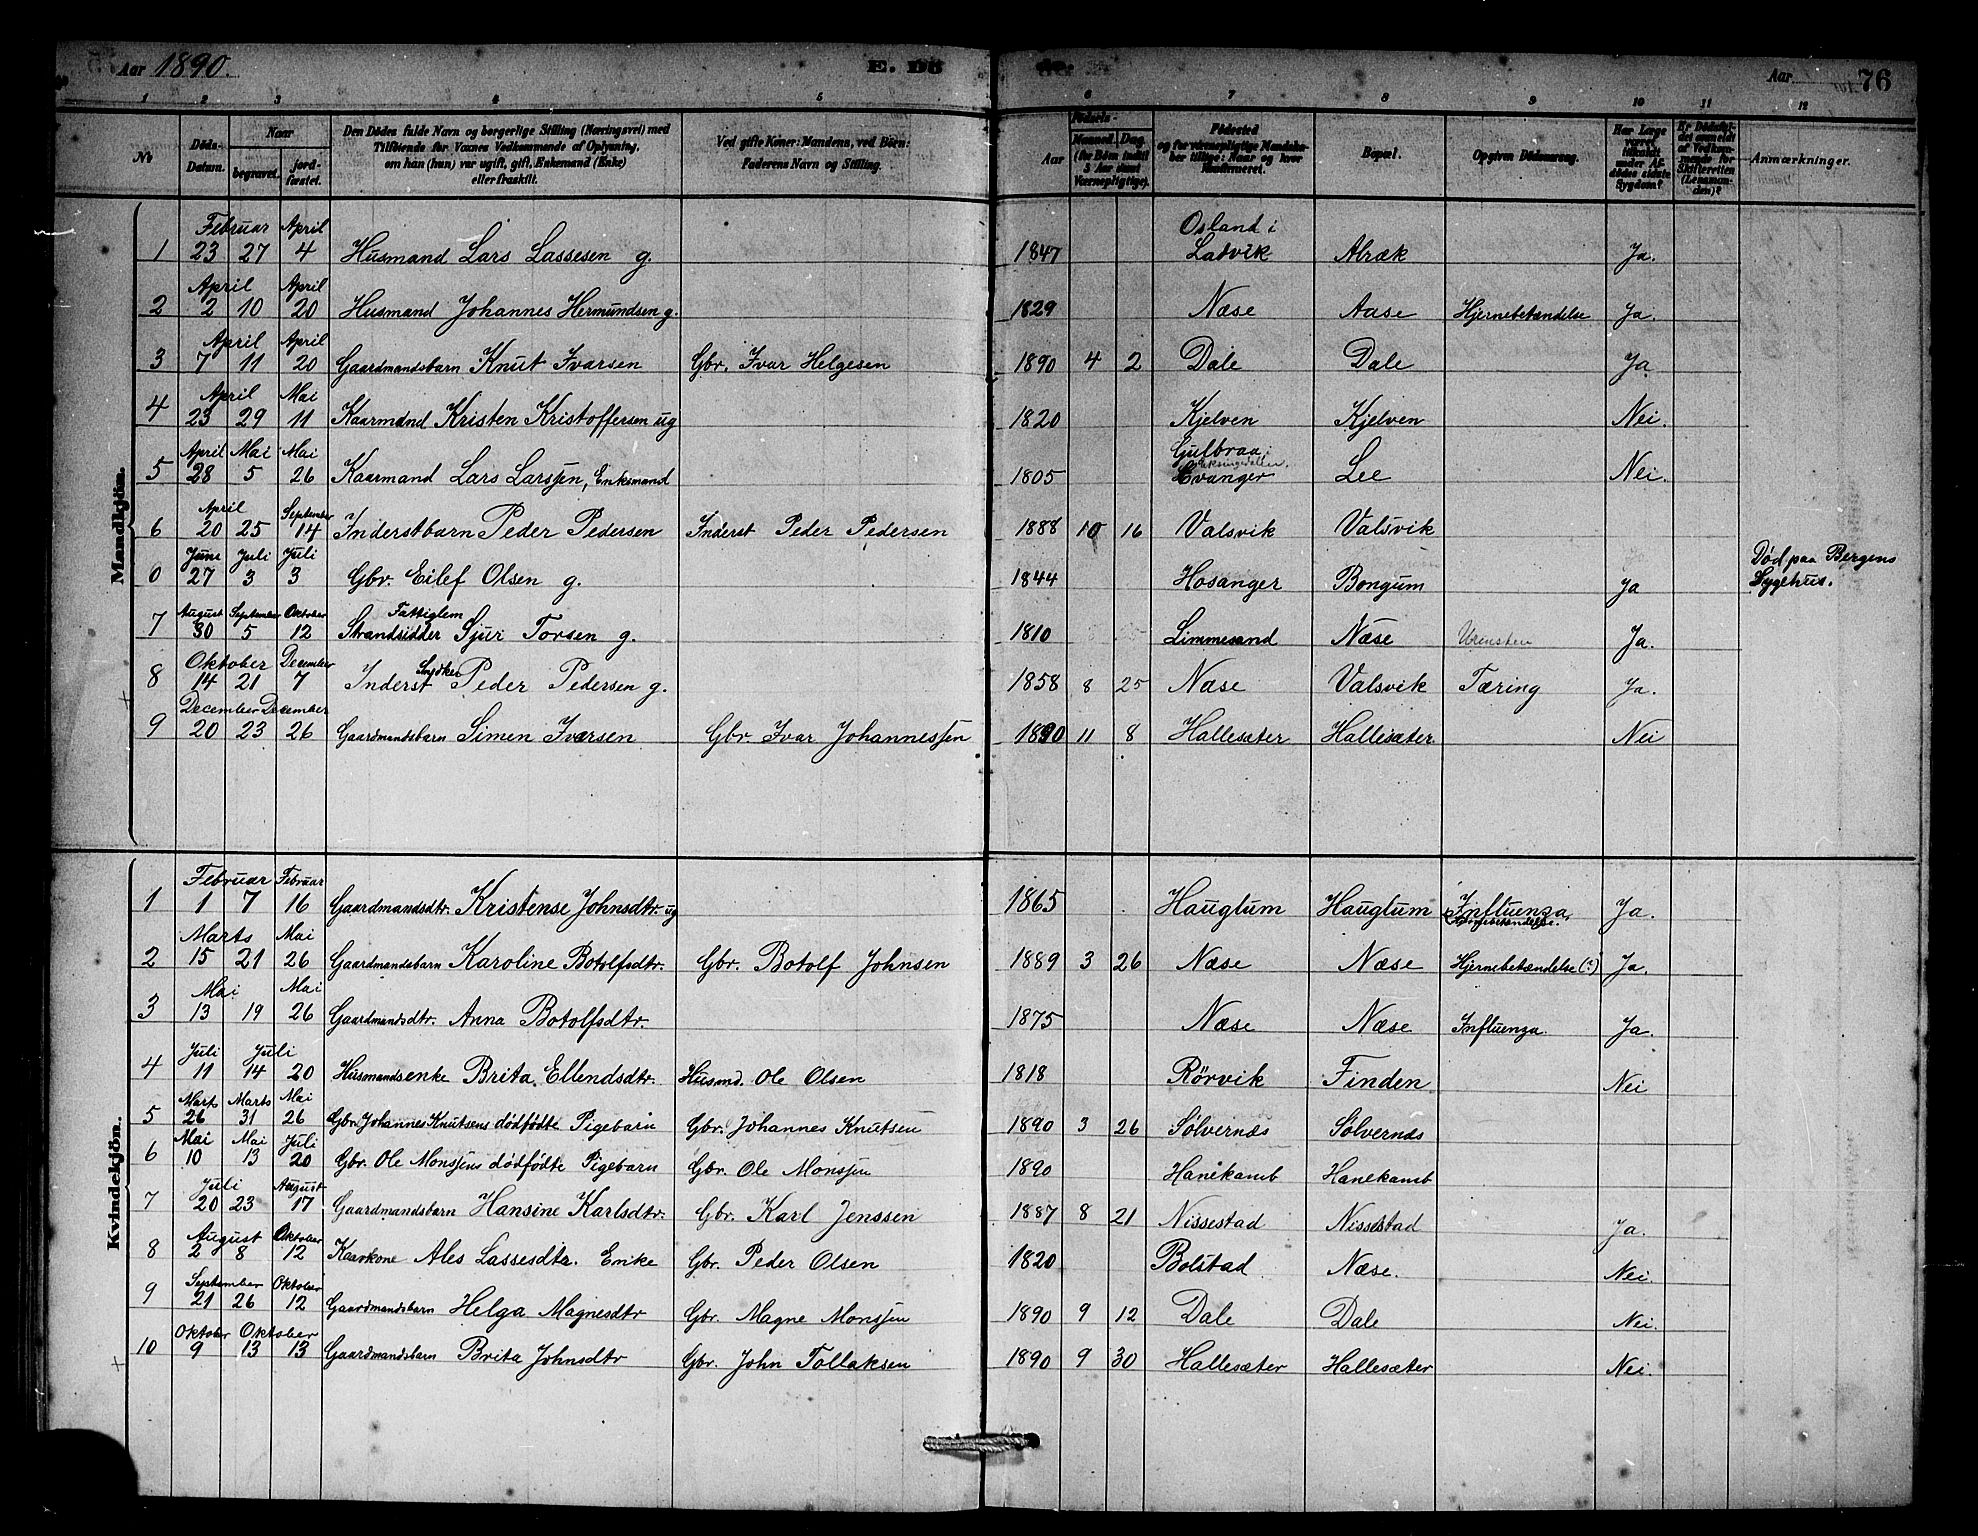 Aar 1890. E. Dö Aar 76
1 2 3 4 5 6 7 8 9 10 11 12
No Döds-Datum. Naar begravet. jordfæstet. Den Dödes fulde Navn og borgerlige Stilling (Næringsvei) med Tilföiende for Voxnes Vedkommende af Oplysning, om han (hun) var ugift, gift, Enkemand (Enke) eller fraskilt. Ved gifte Koner: Mandens, ved Börn: Faderens Navn og Stilling. Födsels- Aar Maaned. Dag. (for Börn indtil 3 Aar samt Værnepligtige). Födested og for værnepligtige Mandskaber tillige: Naar og hvor konfirmeret. Bopæl. Opgiven Dödsaarsag. Har Læge været tilkaldt under Afdödes sidste Sygdom? Er Dödsfaldet anmeldt af Vedkommende for Skifteretten (Lensmanden)? Anmærkninger.
Mandkjön.
Februar April Osland i
1 23 27 4 Husmand Lars Lassesen g. 1847 Ladvik Abræk Ja.
April April
2 2 10 20 Husmand Johannes Hermundsen g. 1829 Næse Aase Hjernebetændelse Ja.
April April
3 7 11 20 Gaardmandsbarn Knut Ivarsen Gbr. Ivar Helgesen 1890 4 2 Dale Dale Ja
April Mai
4 23 29 11 Kaarmand Kristen Kristoffersen ug 1820 Kjelven Kjelven Nei.
April Mai Mai Gulbraa i
5 28 5 26 Kaarmand Lars Larssen, Enkemand 1805 Evanger Lee Nei.
April September
6 20 25 14 Inderstbarn Peder Pedersen Inderst Peder Pedersen 1888 10 16 Valsvik Valsvik
Juni Juli Juli Död paa Bergens
0 27 3 3 Gbr. Eilef Olsen g. 1844 Hosanger Bongum Ja Sygehus.
August September Oktober Fattiglem
7 30 5 12 Strandsidder Sjur Torsen g. 1810 Limmesand Næse Urensten Ja.
Oktober December Snedker
8 14 21 7 Inderst Peder Pedersen g. 1858 8 25 Næse Valsvik Tæring Ja.
December December
9 20 23 26 Gaardmandsbarn Simen Ivarsen Gbr. Ivar Johannessen 1890 11 8 Hallesæter Hallesæter Nei
Kvindekjön.
Februar Februar
1 1 7 16 Gaardmandsdtr. Kristense Johnsdtr. ug 1865 Hauglum Hauglum Influenza, Ja.
Marts Mai
2 15 21 26 Gaardmandsbarn Karoline Botolfsdtr. Gbr. Botolf Johnsen 1889 3 26 Næse Næse Hjernebetændelse (?) Ja.
Mai Mai
3 13 19 26 Gaardmandsdtr. Anna Botolfsdtr. 1875 Næse Næse Influenza. Ja.
Juli Juli
4 11 14 20 Husmandsenke Brita Ellendsdtr. Husmd. Ole Olsen 1818 Rörvik Finden Nei
Marts Marts Mai
5 26 31 26 Gbr. Johannes Knutsens dödfödte Pigebarn Gbr. Johannes Knutsen 1890 3 26 Sölvernæs Sölvernæs
Mai Mai Juli
6 10 13 20 Gbr. Ole Monssens dödfödte Pigebarn Gbr. Ole Monssen 1890 Hanekamb Hanekamb
Juli August
7 20 23 17 Gaardmandsbarn Hansine Karlsdtr. Gbr. Karl Jenssen 1887 8 21 Nissestad Nissestad Ja.
August Oktober
8 2 8 12 Kaarkone Ales Lassesdtr. Enke Gbr. Peder Olsen 1820 Bolstad Næse. Nei.
September Oktober
9 21 26 12 Gaardmandsbarn Helga Magnesdtr Gbr. Magne Monssen 1890 9 12 Dale Dale Nei.
Oktober Oktober
10 9 13 13 Gaardmandsbarn Brita Johnsdtr Gbr. John Tollaksen 1890 9 30 Hallesæter Hallesæter Nei.